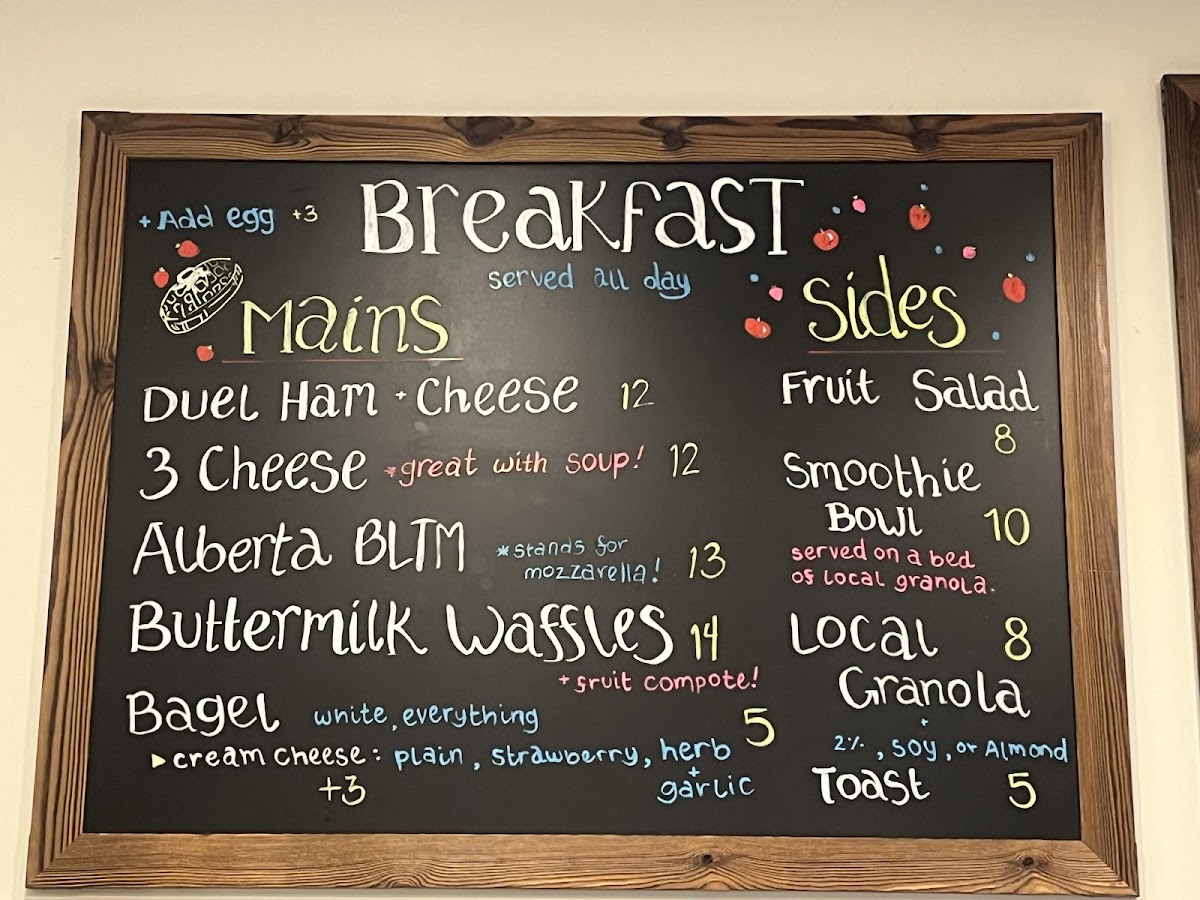 Breakfast
served all day
+ Add egg +3
Mains
Duel Ham + Cheese 12
3 Cheese *great with soup! 12
Alberta BLTM *stands for
mozzarella! 13
Buttermilk Waffles 14
+ fruit compote!
Bagel white, everything 5
▸ cream cheese: plain, strawberry, herb
+
+3 garlic
Sides
Fruit Salad
8
Smoothie
Bowl 10
served on a bed
of local granola.
Local 8
Granola
+
2%, soy, or Almond
Toast 5